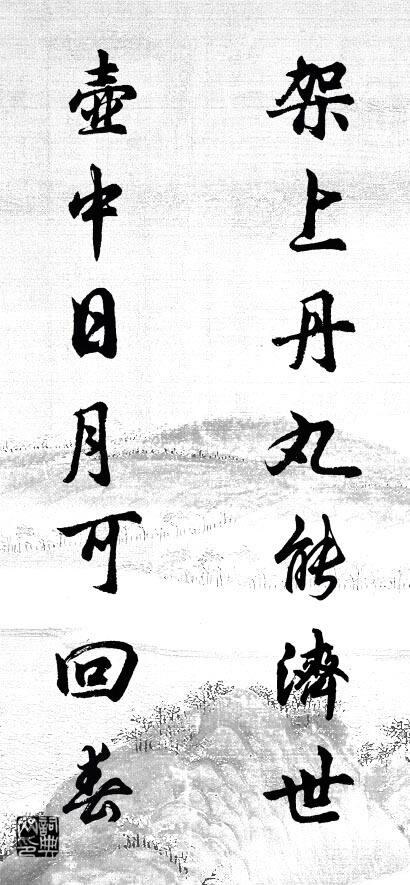 架上丹丸能濟世
壺中日月可回春